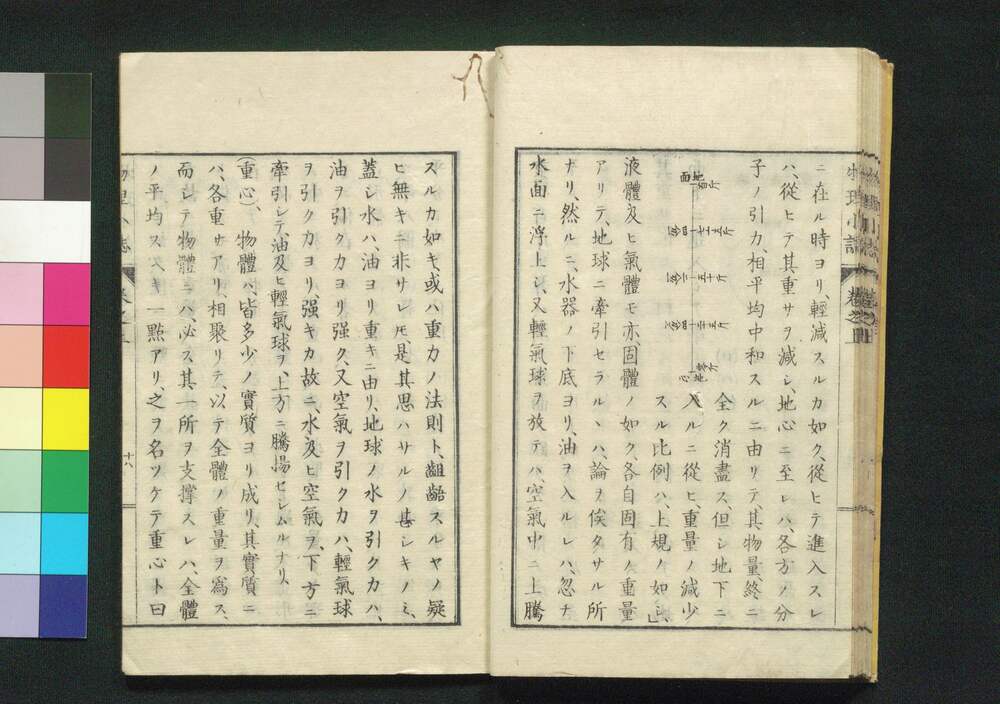 ニ在ル時ヨリ、輕減スルカ如ク、從ヒテ進入スレ
ハ、從ヒテ其重サヲ減シ、地心ニ至レハ、各方ノ分
子ノ引力、相平均中和スルニ由リテ、其物量、終ニ
全ク消盡ス、但シ地下ニ
入ルニ從ヒ、重量ノ減少
スル比例ハ、上規ノ如シ、
地面
百斤
七十五斤
五十斤
二十五斤
零斤
地心
液體及ヒ氣體モ亦、固體ノ如ク、各自固有ノ重量
アリテ、地球ニ牽引セラルヽハ、論ヲ俟タサル所
ナリ、然ルニ、水器ノ下底ヨリ、油ヲ入ルレハ、忽ナ
水面ニ浮上シ、又輕氣球ヲ放テハ、空氣中ニ上騰
スルカ如キ、或ハ重力ノ法則ト、齟齬スルヤノ疑
ヒ無キニ非サレ𪜈、是其思ハサルノ甚シキノミ、
蓋シ水ハ、油ヨリ重キニ由リ、地球ノ水ヲ引ク力ハ、
油ヲ引ク力ヨリ强ク、又空氣ヲ引ク力ハ、輕氣球
ヲ引ク力ヨリ、强キカ故ニ、水及ヒ空氣ヲ、下方ニ
牽引シテ、油及ヒ輕氣球ヲ、上方ニ騰揚セシムルナリ、
(重心)、物體ハ、皆多少ノ實質ヨリ成リ、其實質ニ
ハ、各重サアリ、相聚リテ、以テ全體ノ重量ヲ爲ス、
而シテ物體ニハ、必ス其一所ヲ支撐スレハ、全體
ノ平均スヘキ一點アリ、之ヲ名ツケテ重心ト曰
十八